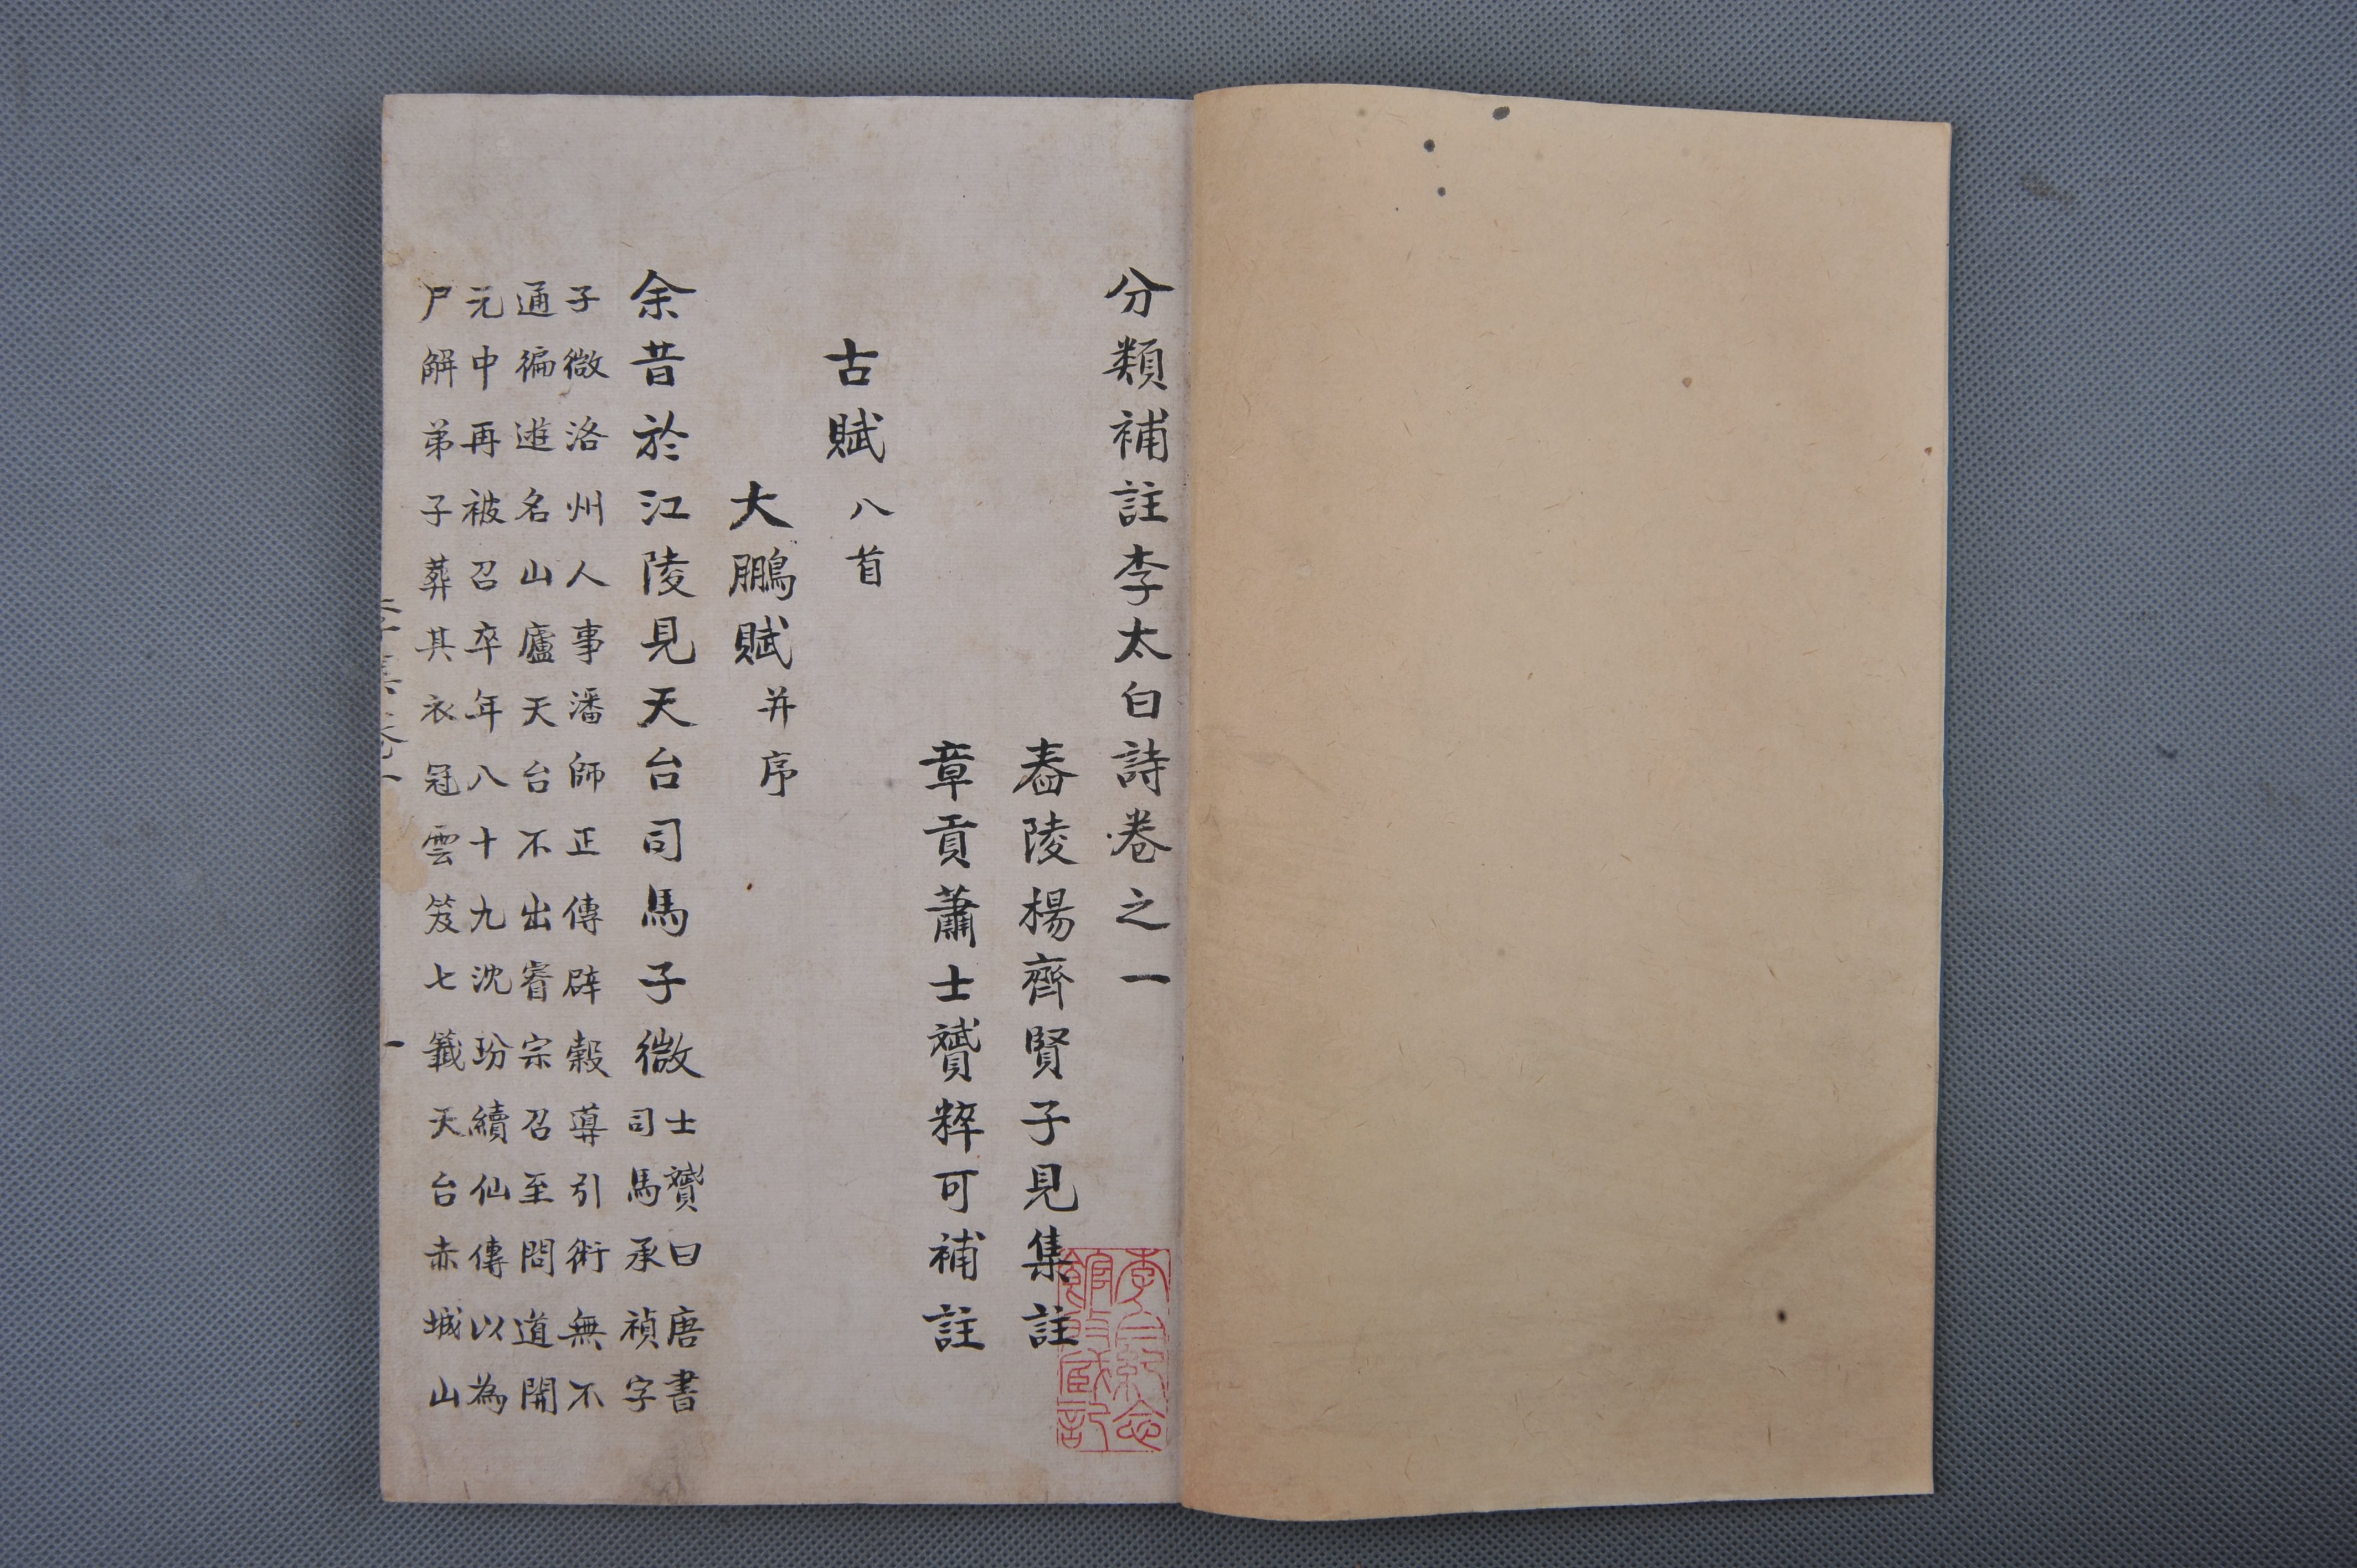 分類補註李太白詩卷之一
舂陵楊齊賢子見集註
章貢蕭士贇粹可補註
古賦八首
大鵬賦并序
余昔於江陵見天台司馬子微士贇曰唐書
司馬承禎字
子微洛州人事潘師正傳辟穀導引術無不
通徧遊名山廬天台不出睿宗召至問道開
元中再被召卒年八十九沈玢續仙傳以為
尸解弟子葬其衣冠雲笈七籤天台赤城山
李集卷一
一
李白紀念
館收藏記